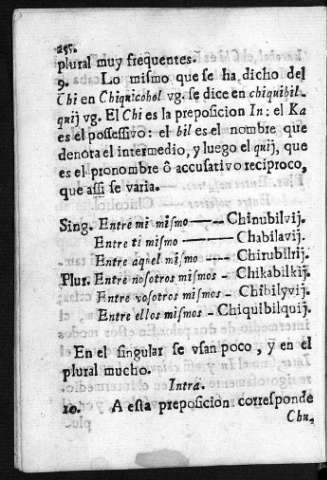 257.
plural muy frequentes.
9. Lo mismo que se ha dicho del
Chi en Chiquicohol vg. se dice en chiquibil-
quij vg. El Chi es la preposicion In: el Ka
es el possessivo: el bil es el nombre que
denota el intermedio, y luego el quij, que
es el pronombre ô accusativo reciproco,
que assi se varia.
Sing. Entre mi mismo —— Chinubilvij.
Entre ti mismo —— Chabilavij.
Entre aquel mismo —— Chirubilrij.
Plur. Entre nosotros mismos - Chikabilkij.
Entre vosotros mismos - Chibilyvij.
Entre ellos mismos - Chiquibilquij.
En el singular se vsan poco, ÿ en el
plural mucho.
Intra.
10. A esta preposicion corresponde
Chu,